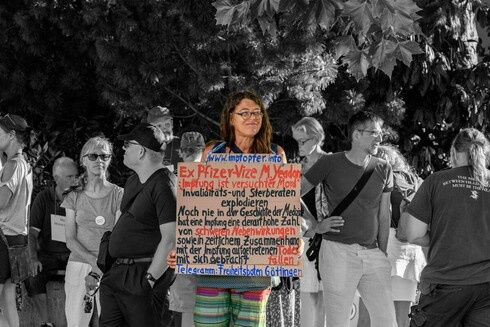 www.impfopfer.info
Ex Pfizer-Vize M. Yeadon:
Impfung ist versuchter Mord
Invaliditäts-und Sterberaten
explodieren
Noch nie in der Geschichte der Medizin
hat eine Impfung eine derart hohe Zahl
von schweren Nebenwirkungen
sowie in zeitlichem Zusammenhang
mit der Impfung aufgetretenen Todes
fällen
mit sich gebracht
Telegramm: Freiheitsboten Göttingen